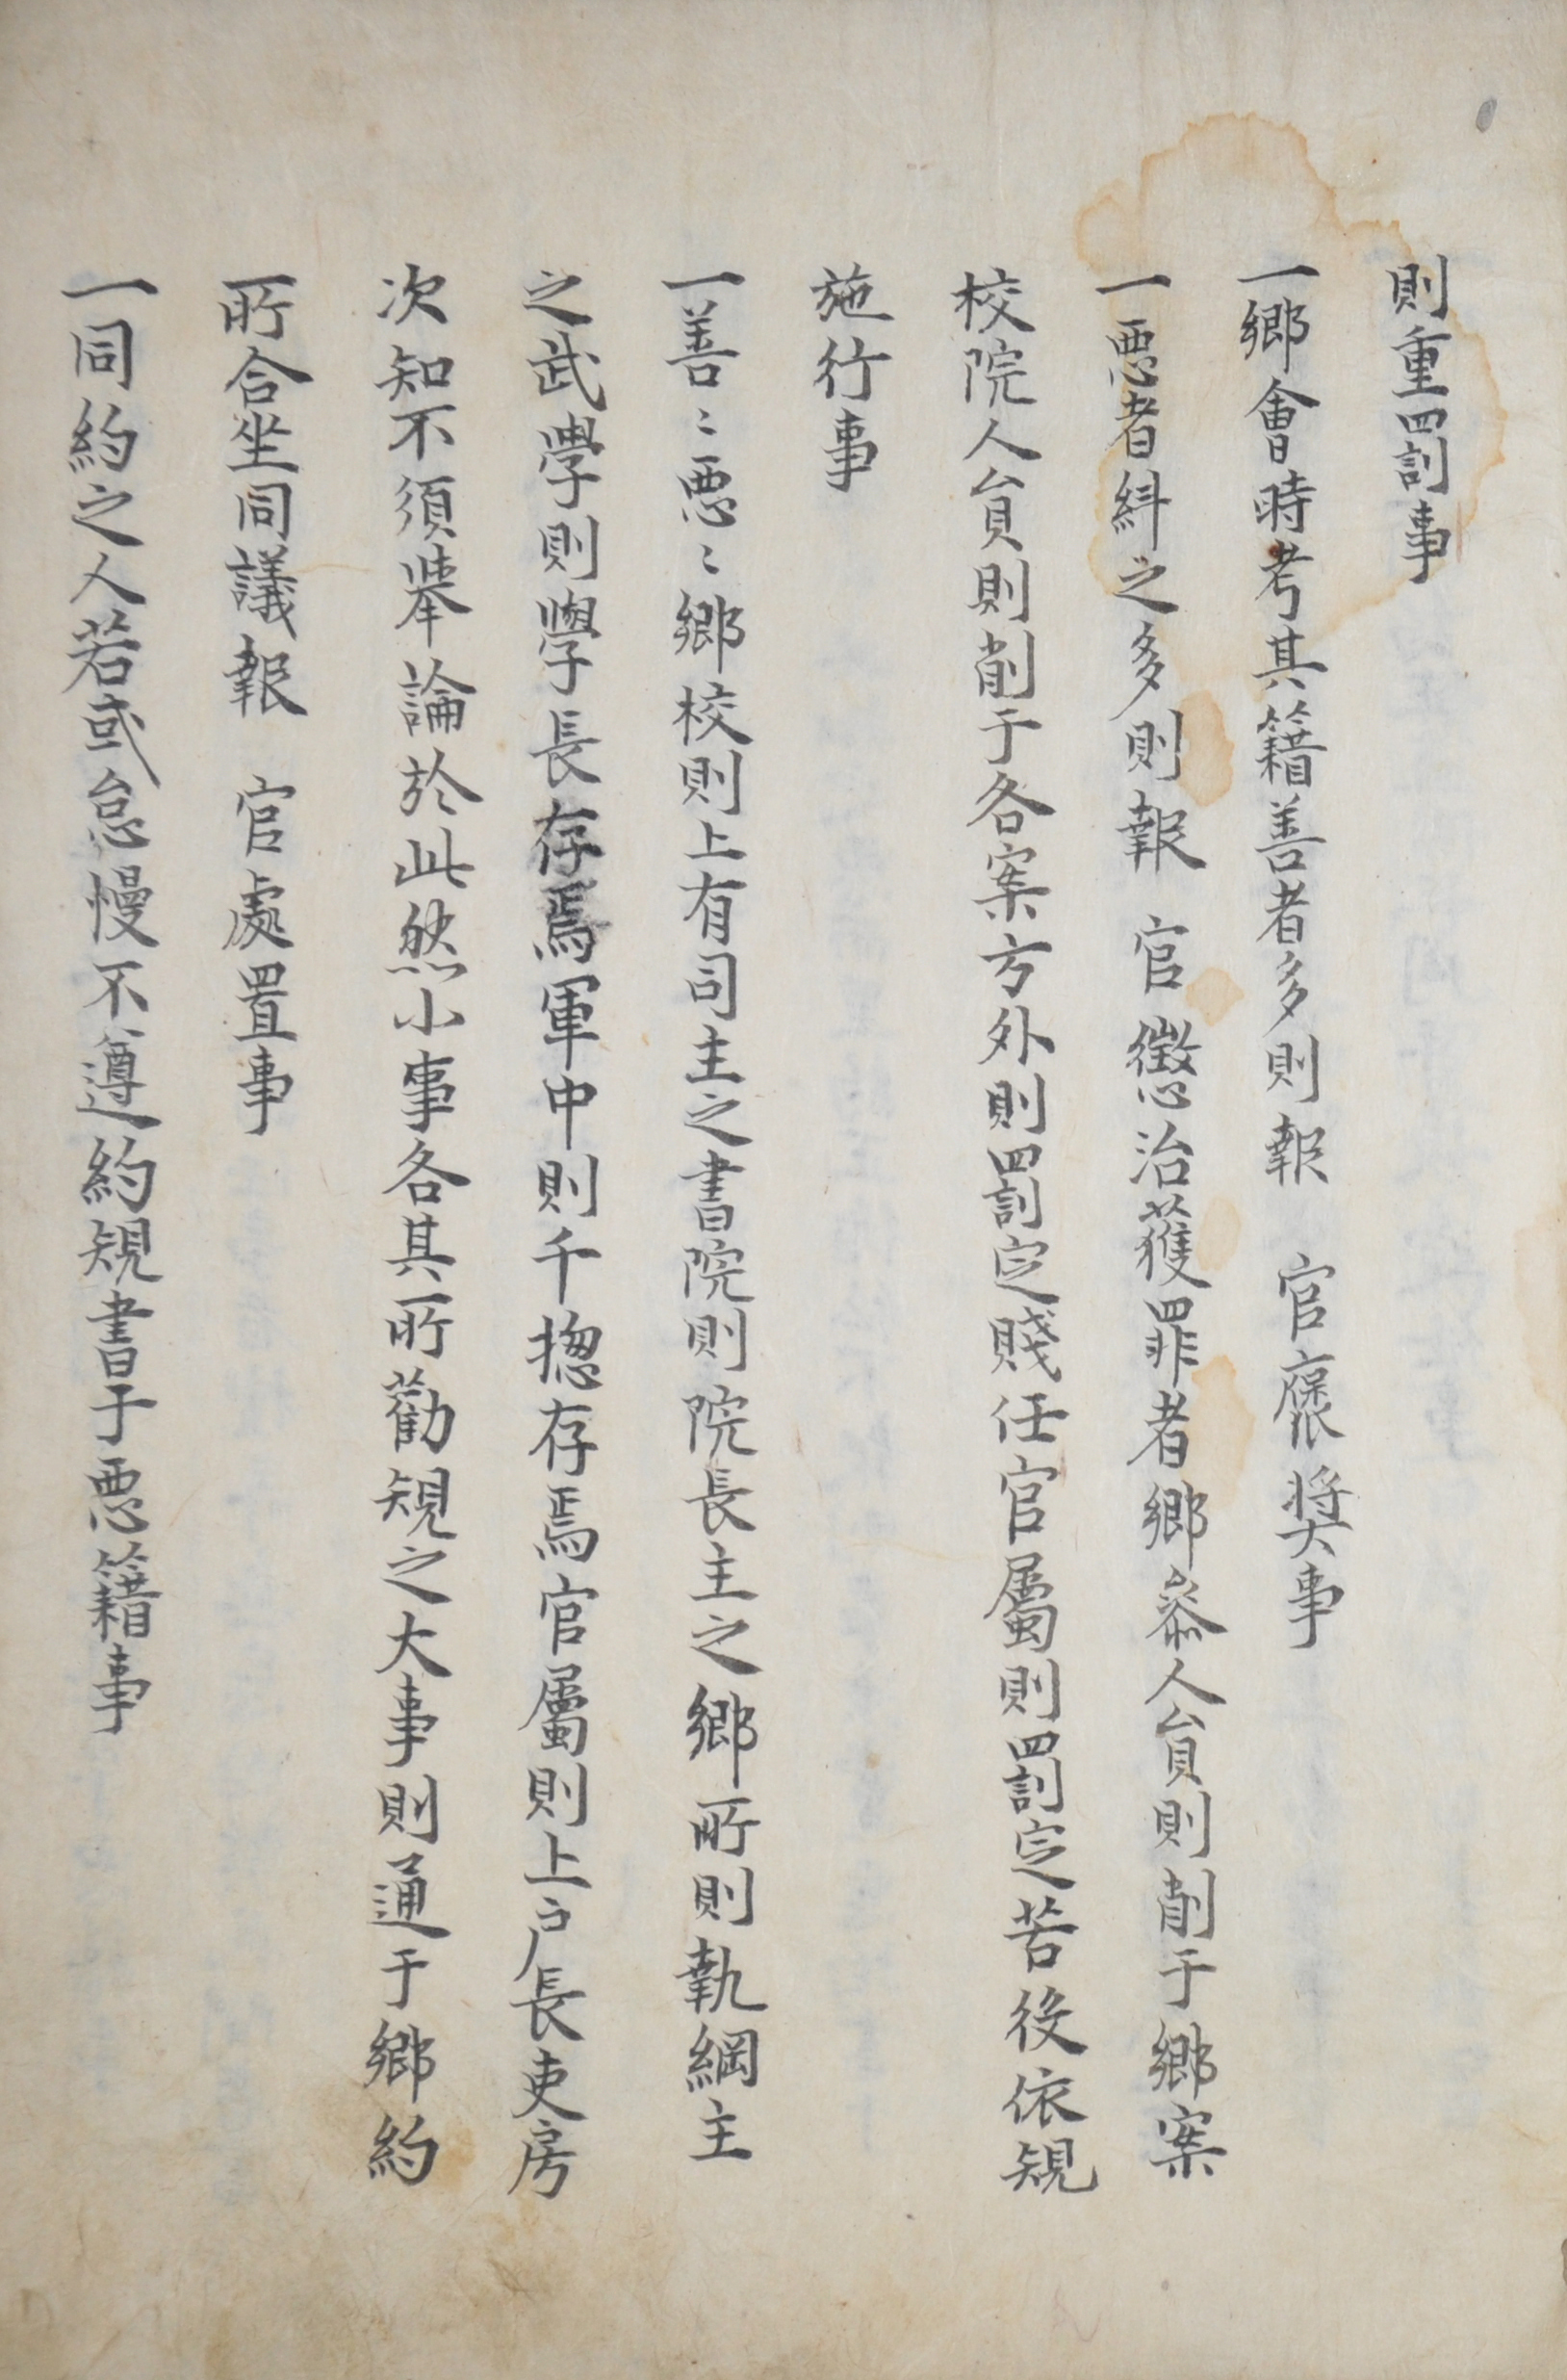 則重罰事
一鄕會時考其籍善者多則報 官褒奬事
一惡者糾之多則報 官懲治獲罪者鄕叅人員則削于鄕案
校院人員則削于各案方外則罰定賤任官屬則罰定苦役依規
施行事
一善〻惡〻鄕校則上有司主之書院則院長主之鄕所則執綱主
之武學則學長存焉軍中則千摠存焉官屬則上戶長吏房
次知不須擧論於此然小事各其所勸規之大事則通于鄕約
所合坐同議報 官處置事
一同約之人若或怠慢不遵約規書于惡籍事